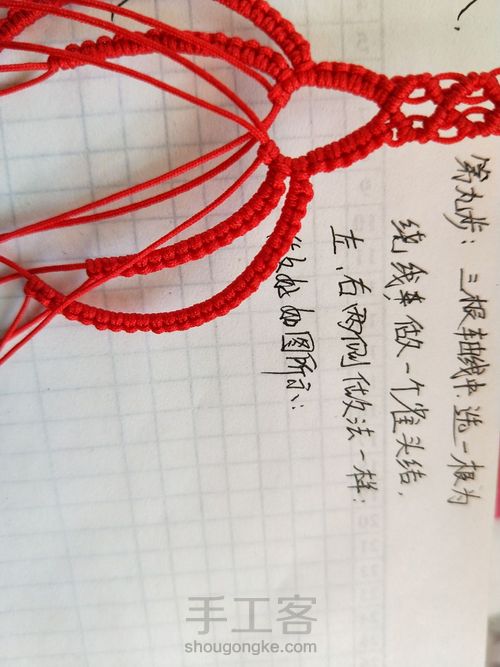 第九步：三根轴线中，选一根为
绕线来做一个雀头结，
左、右两侧做法一样；
如图所示：
手工客
shougongke.com